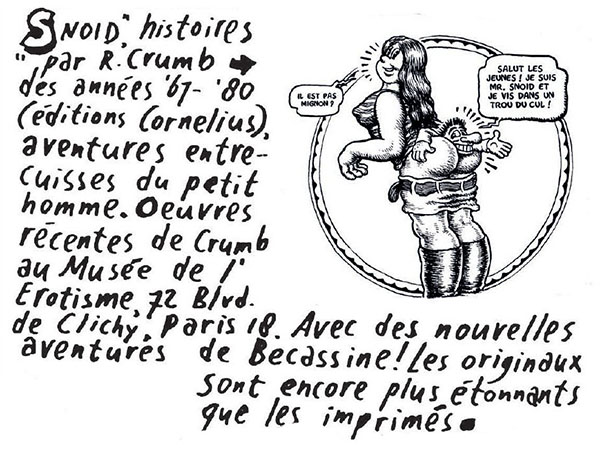 SNOID", histoires
"par R. Crumb →
des années '67-'80
(éditions Cornelius),
aventures entre-
cuisses du petit
homme. Oeuvres
récentes de Crumb
au Musée de l'
Erotisme, 72 Blvd.
de Clichy, Paris 18. Avec des nouvelles
aventures de Becassine! Les originaux
sont encore plus étonnants
que les imprimés.
IL EST PAS
MIGNON?
SALUT LES
JEUNES! JE SUIS
MR. SNOID ET
JE VIS DANS UN
TROU DU CUL!